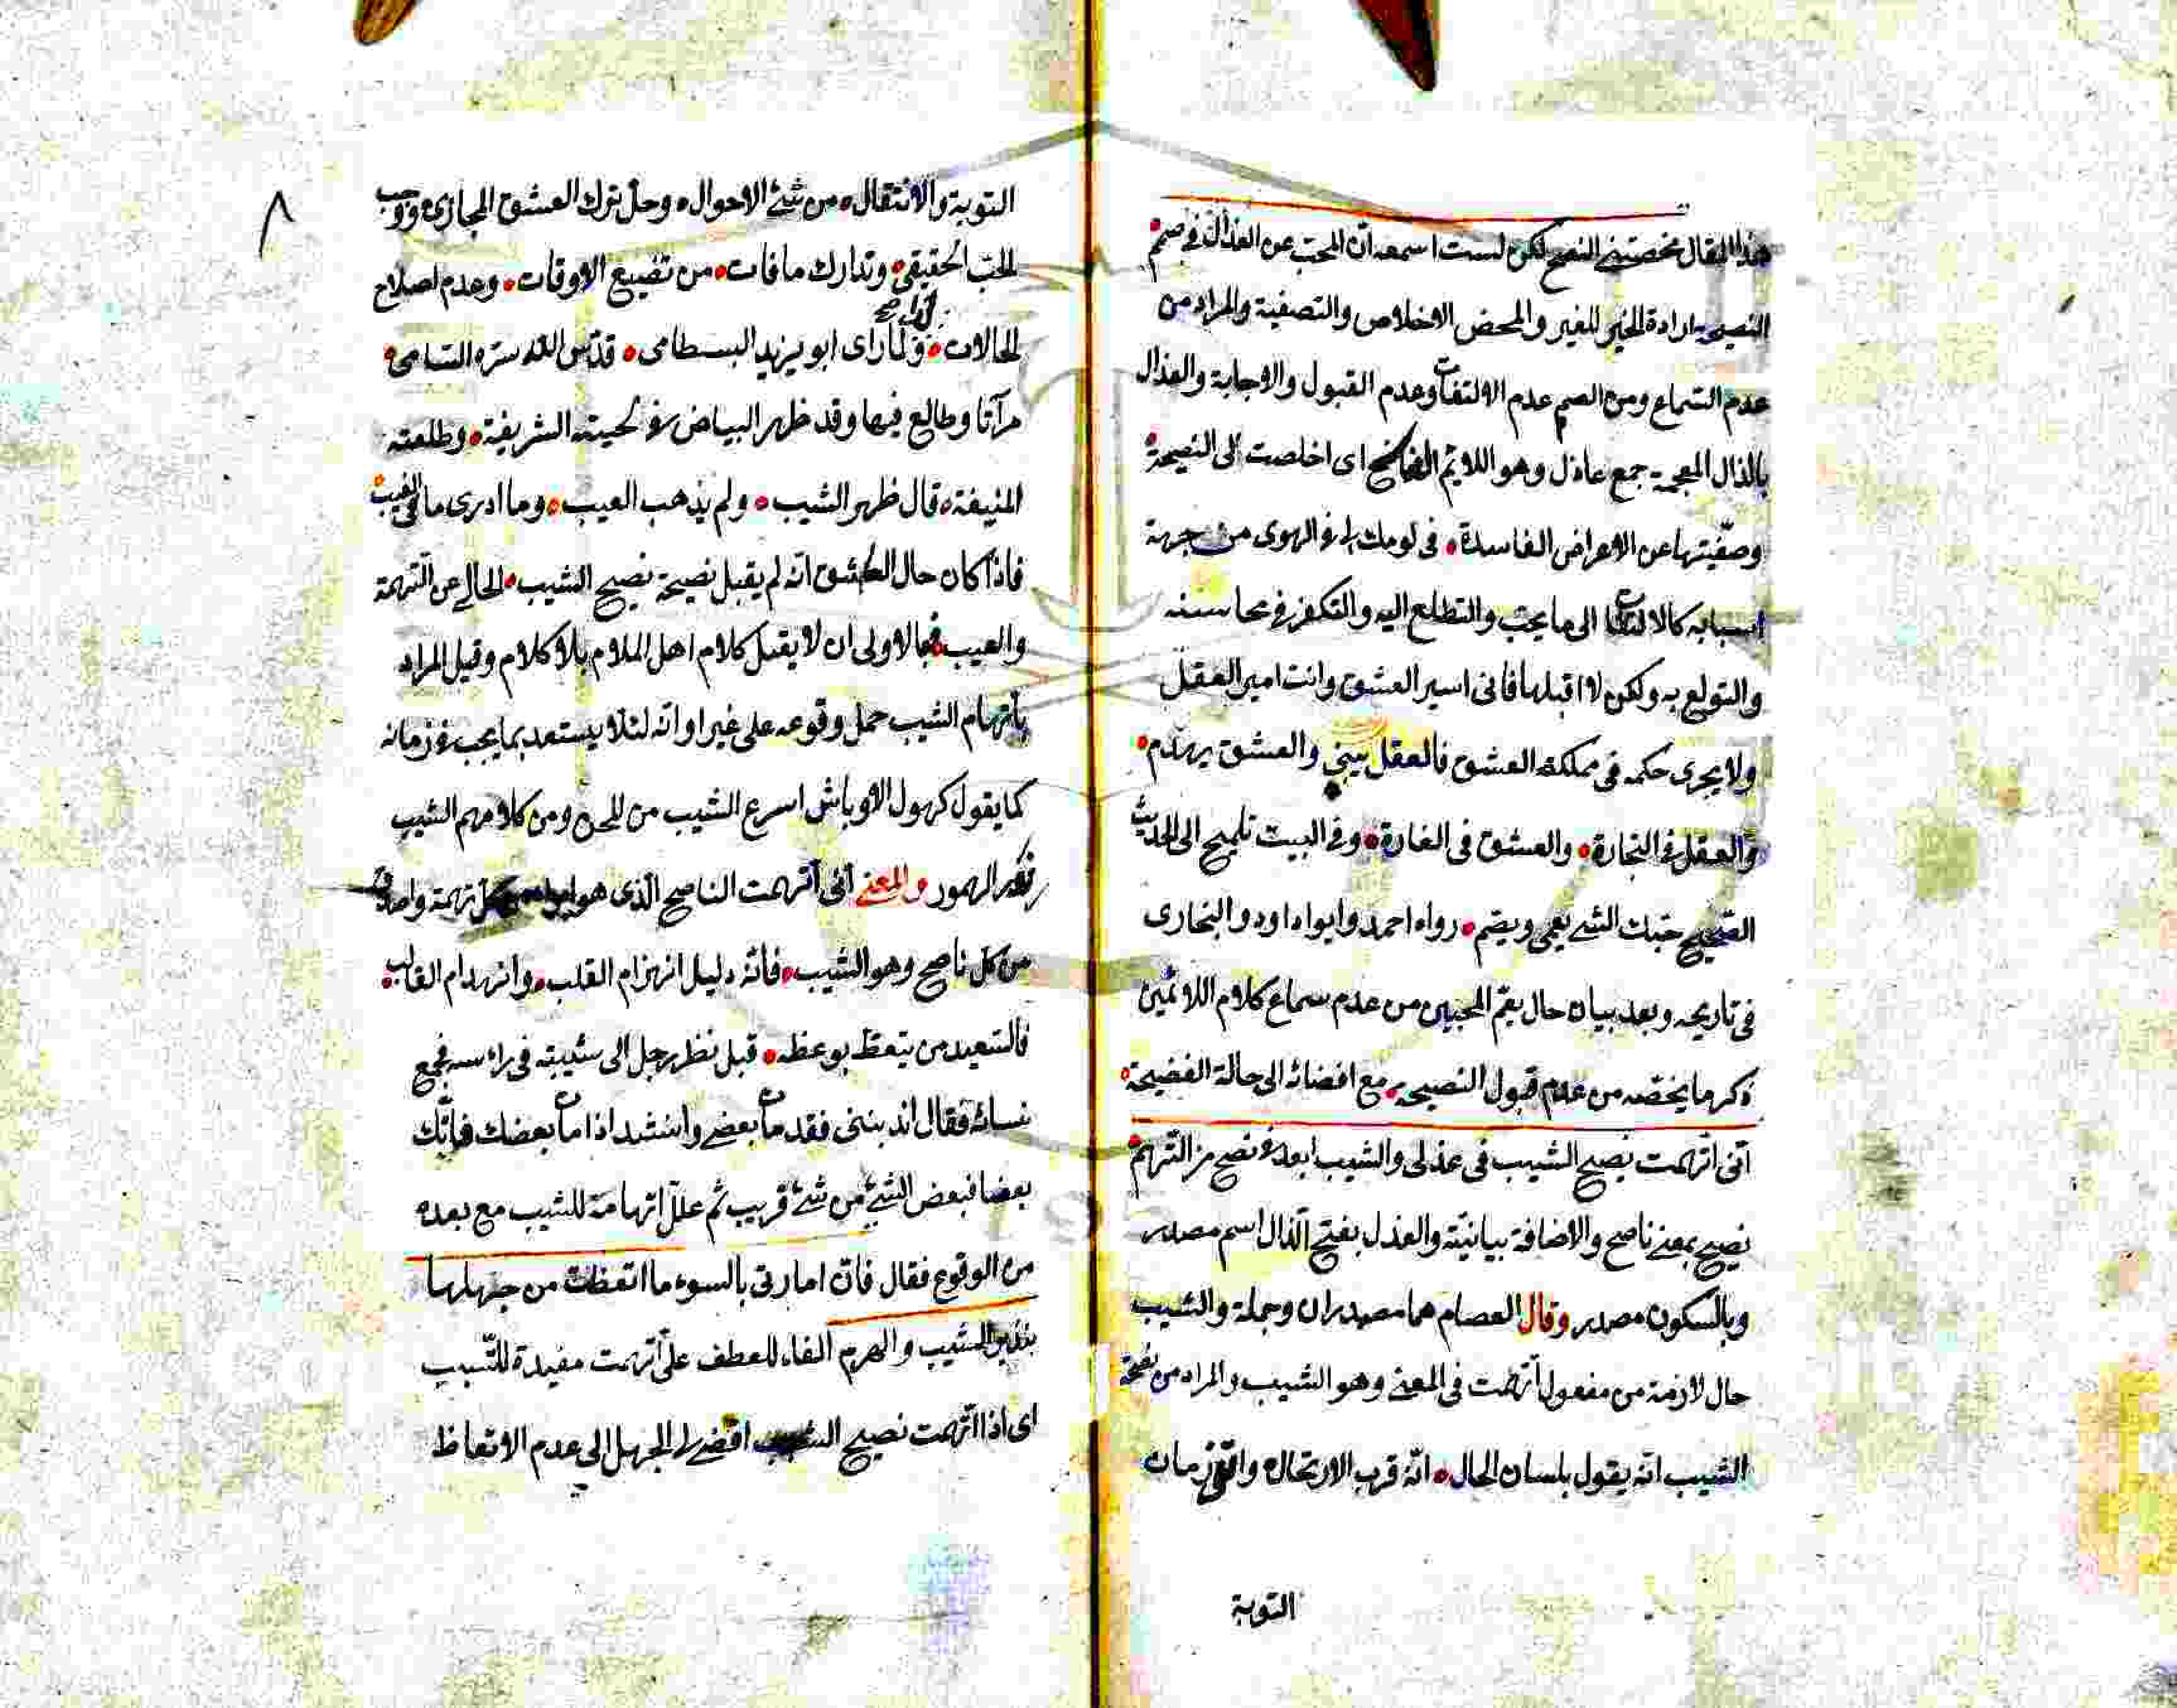 هذا المقال محضتني النصح لكن لست اسمعه ان المحب عن العذال في صمم
النصيحة ارادة الخير للغير والمحض الاخلاص والتصفية والمراد من
عدم السماع ومن الصمم عدم الالتفات وعدم القبول والاجابة والعذال
بالذال المعجمة جمع عاذل وهو اللائم اى اخلصت لى النصيحة
وصفيتها عن الاعراض الفاسدة في لومك لى في الهوى من جهة
اسبابه كالالتفات الى ما يحب والتطلع اليه والتكفر في محاسنه
والتولع به ولكن لا اقبلها فانى اسير العشق وانت امير العقل
ولا يجرى حكمه في مملكة العشق فالعقل يبني والعشق يهدم
والعقل في التجارة والعشق في الغارة وفي البيت تلميح الى الحديث
الصحيح حبك الشئ يعمى ويصم رواه احمد وابو داود والبخارى
في تاريخه وبعد بيان حال يعم المحبين من عدم سماع كلام اللائمين
ذكر ما يخصه من عدم قبول النصيحة مع افضائه الى حالة الفضيحة
انى اتهمت نصيح الشيب في عذلى والشيب ابعد في نصح من التهم
نصيح بمعنى ناصح والاضافة بيانية والعذل بفتح الذال اسم مصدر
وبالسكون مصدر وقال العصام هما مصدران وجملة والشيب
حال لازمة من مفعول اتهمت في المعنى وهو الشيب والمراد من نصحة
الشيب انه يقول بلسان الحال انه قرب الارتحال زمان
التوبة
التوبة والانتقال من شئ الاحوال وحل ترك العشق المجازى ووجب
الحب الحقيقى وتدارك ما فات من تضييع الاوقات وعدم اصلاح
الحالات ولما راى ابو يزيد البسطامى قدس الله سره السامى
مرآتا وطالع فيها وقد ظهر البياض في لحيته الشريفة وطلعته
المنيفة قال ظهر الشيب ولم يذهب العيب وما ادرى ما في الغيب
فاذا كان حال العشق انه لم يقبل نصيحة نصيح الشيب الخالى عن التهمة
والعيب فبالاولى ان لا يقبل كلام اهل الملام بلا كلام وقيل المراد
باتهام الشيب حمل وقوعه على غير اوانه لئلا يستعد بما يجب في زمانه
كما يقول كهول الاوباش اسرع الشيب من المحن ومن كلامهم الشيب
الهموم والمعنى انى اتهمت الناصح الذى هو تهمة واصدق
من كل ناصح وهو الشيب فانه دليل انهزام القلب وانهدام القالب
فالسعيد من يتعظ بوعظه قيل نظر رجل الى شيبته في راسه فجمع
نسائه فقال اندبننى فقد مات بعضى وانشد اذا مات بعضك فابك
بعضا فبعض الشئ من شئ قريب ثم علل اتهامه للشيب مع بعده
من الوقوع فقال فان امارتى بالسوء ما اتعظت من جهلها
بنذير الشيب والهرم الفاء للعطف على اتهمت مفيدة للتسبب
اى اذا اتهمت نصيح الشيب افضى لى الجهل الى عدم الاتعاظ